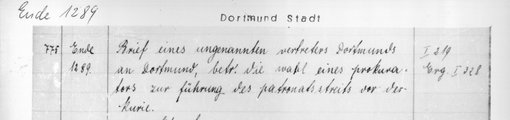 Ende 1289
Dortmund Stadt
775 Ende Brief eines ungenannten vertreters Dortmunds I 219
1289. an Dortmund, betr. die wahl eines prokura- Erg I 328
tors zur führung des patronatsstreits vor der
kurie.